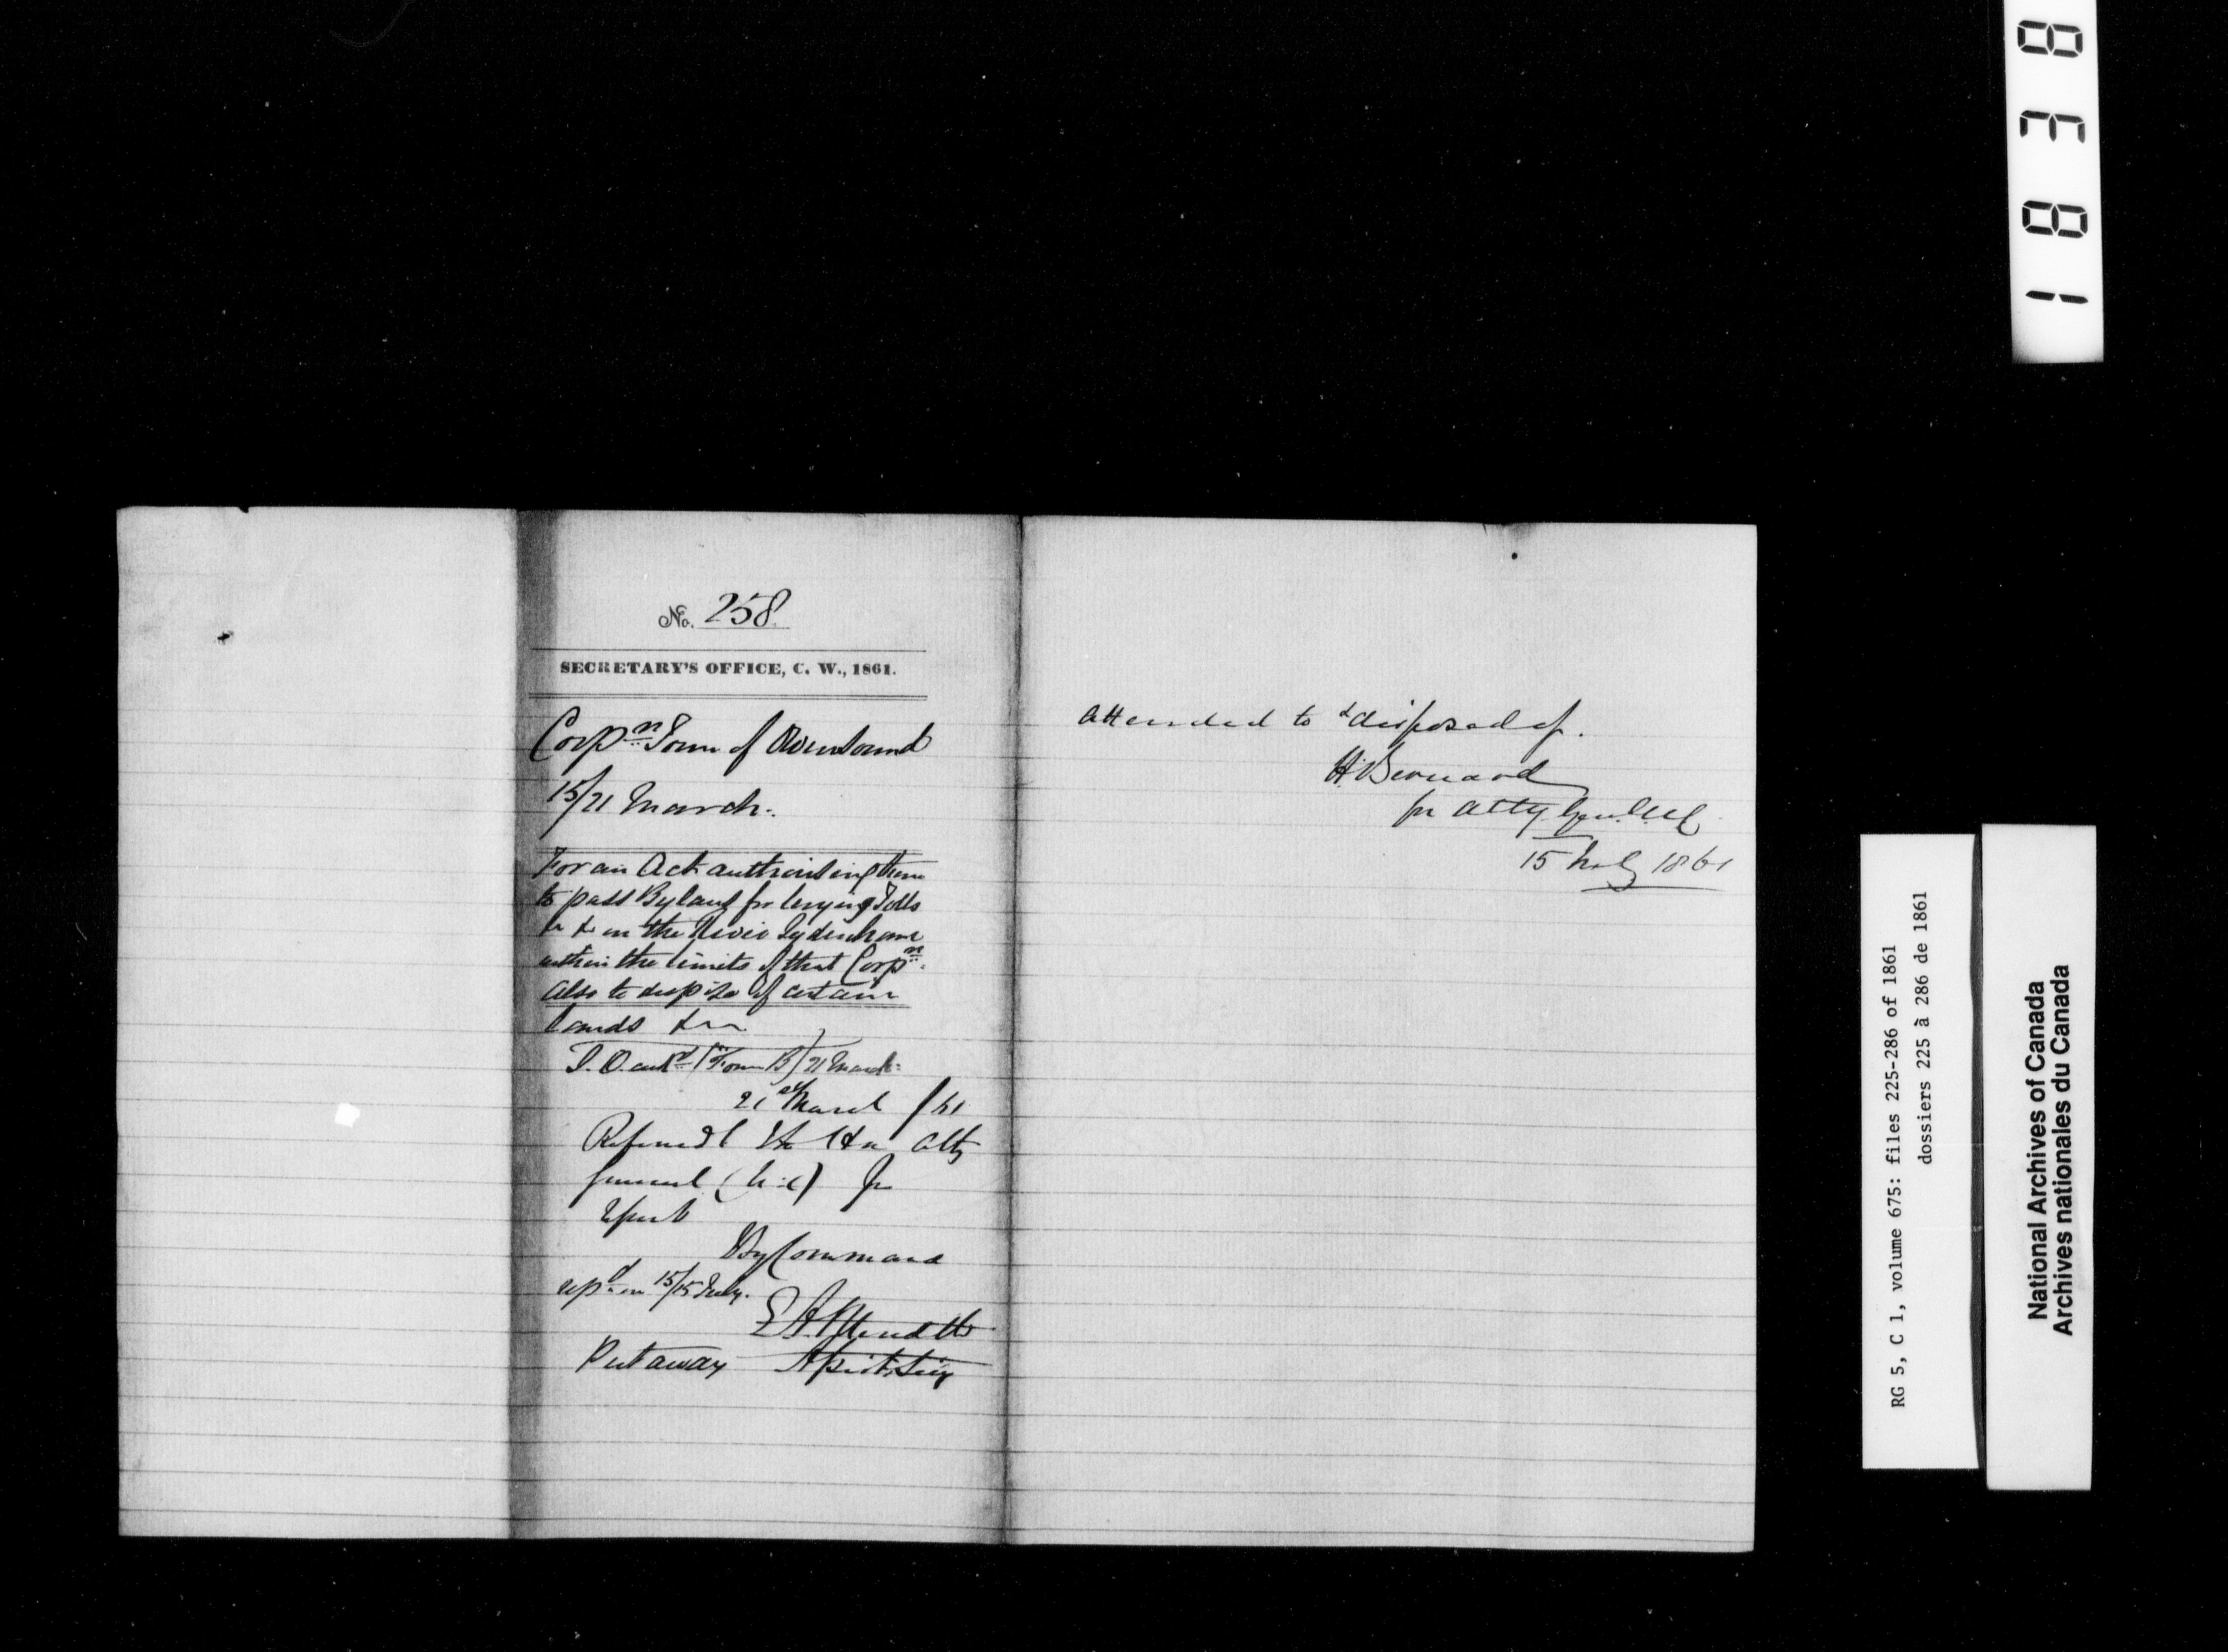 No. 258.
SECRETARY'S OFFICE, C. W., 1861.
Corpn Town of Owensound
15/21 March.
For an Act authorising them
to pass Bylaws for levying Tolls
&c &c on the River Sydenham
within the limits of that Corpn.
Also to dispose of certain
lands &c
21st March /61
Referred to the Hon Atty
General (U.C) for
report
By Command
repd on 15/15 July.
E A Meredith
Put away Asst. Secy
Attended to & disposed of.
H. Bernard
for Atty Genl. U C
15 July 1861
1 8 3 8
RG 5, C 1, volume 675: files 225-286 of 1861
dossiers 225 à 286 de 1861
National Archives of Canada
Archives nationales du Canada